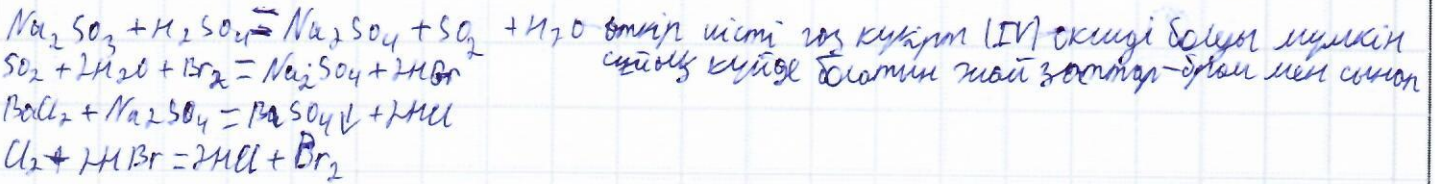 Na₂SO₃ + H₂SO₄ = Na₂SO₄ + SO₂ + H₂O өткір иісті газ күкірт (IV) оксиді болуы мүмкін
SO₂ + 2H₂O + Br₂ = Na₂SO₄ + 2HBr сұйық күйде болатын жай заттар - бром мен сынап
BaCl₂ + Na₂SO₄ = BaSO₄↓ + 2HCl
Cl₂ + 2HBr = 2HCl + Br₂